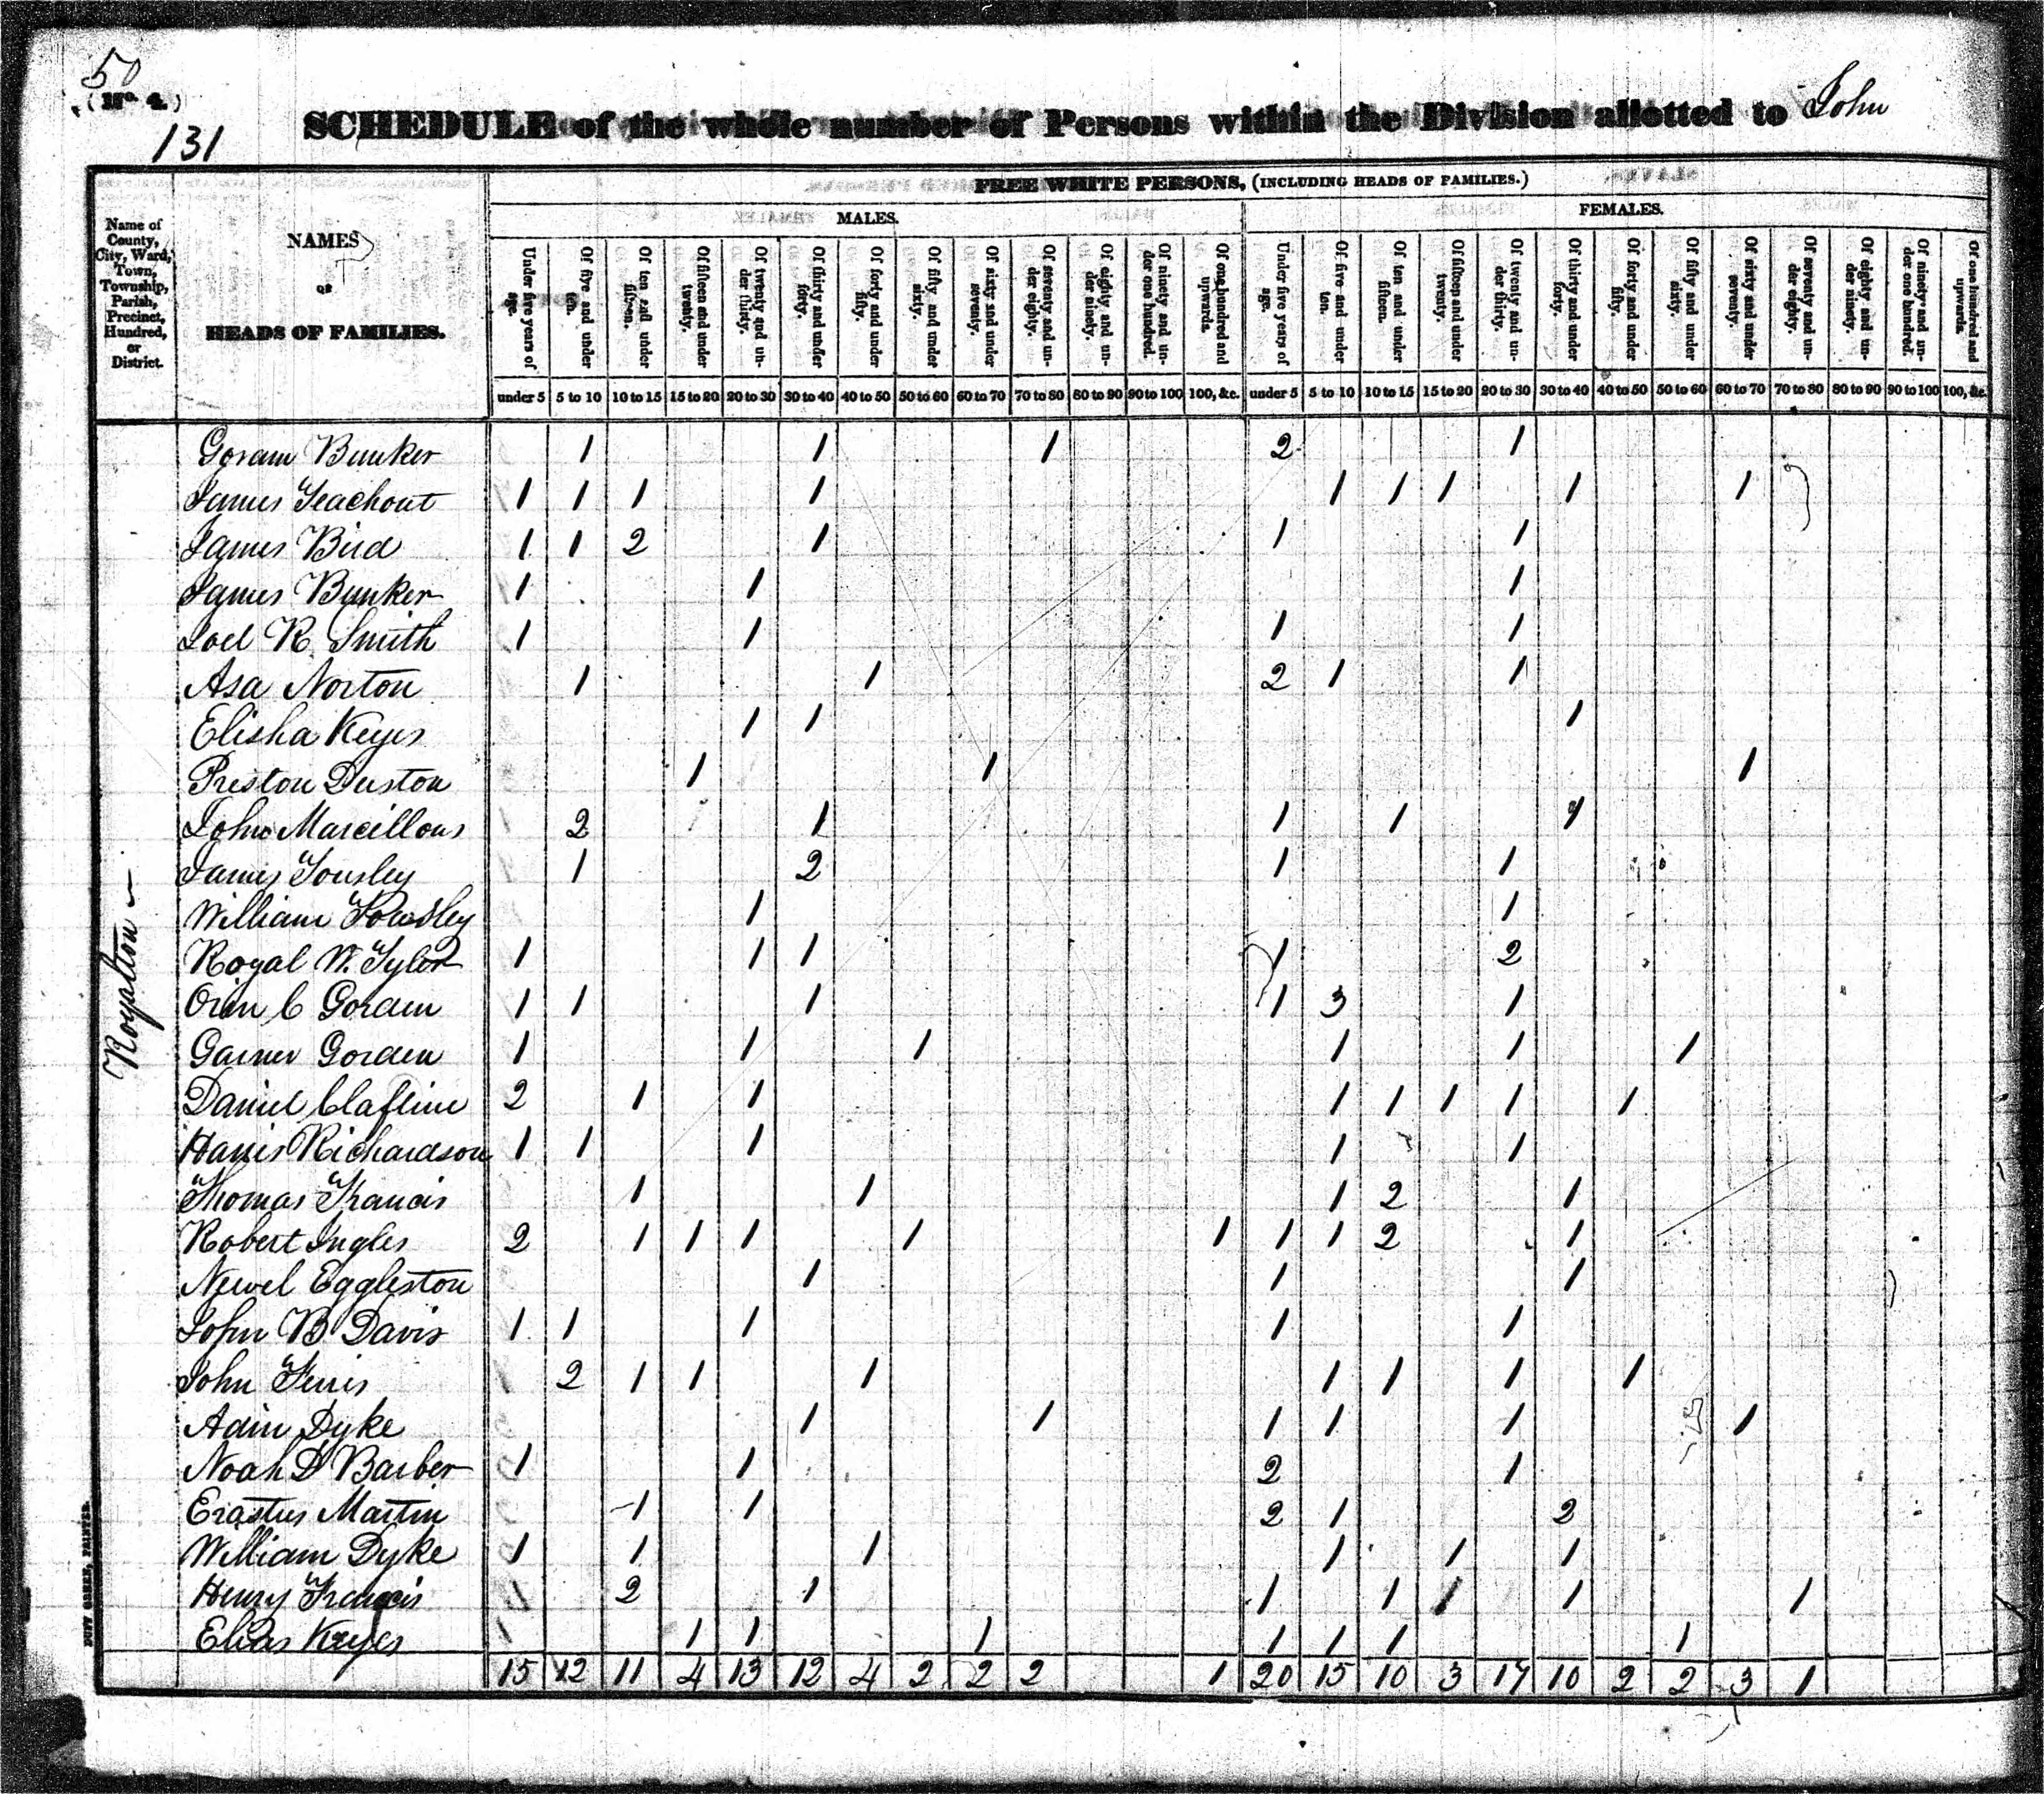 50
(No. 4.)
131
SCHEDULE of the whole number of Persons within the Division allotted to John
FREE WHITE PERSONS, (INCLUDING HEADS OF FAMILIES.)
MALES. FEMALES.
Name of County, City, Ward, Town, Township, Parish, Precinct, Hundred, or District.
NAMES
OF
HEADS OF FAMILIES.
Under five years of age. Of five and under ten. Of ten and under fifteen. Of fifteen and under twenty. Of twenty and under thirty. Of thirty and under forty. Of forty and under fifty. Of fifty and under sixty. Of sixty and under seventy. Of seventy and under eighty. Of eighty and under ninety. Of ninety and under one hundred. Of one hundred and upwards. Under five years of age. Of five and under ten. Of ten and under fifteen. Of fifteen and under twenty. Of twenty and under thirty. Of thirty and under forty. Of forty and under fifty. Of fifty and under sixty. Of sixty and under seventy. Of seventy and under eighty. Of eighty and under ninety. Of ninety and under one hundred. Of one hundred and upwards.
under 5 5 to 10 10 to 15 15 to 20 20 to 30 30 to 40 40 to 50 50 to 60 60 to 70 70 to 80 80 to 90 90 to 100 100, &c. under 5 5 to 10 10 to 15 15 to 20 20 to 30 30 to 40 40 to 50 50 to 60 60 to 70 70 to 80 80 to 90 90 to 100 100, &c.
Royalton
Goram Bunker 1 1 1 2 1
James Teachout 1 1 1 1 1 1 1 1 1
James Bird 1 1 2 1 1 1
James Bunker 1 1 1
Joel R. Smith 1 1 1 1
Asa Norton 1 1 2 1 1
Elisha Keyes 1 1 1
Preston Duston 1 1 1
John Marcillous 2 1 1 1 1
James Tousley 1 2 1 1
William Towsley 1 1
Royal W. Tyler 1 1 1 1 2
Orin C Gordem 1 1 1 1 3 1
Garner Gordem 1 1 1 1 1 1
Daniel Clafline 2 1 1 1 1 1 1 1
Harris Richardson 1 1 1 1 1
Thomas Francis 1 1 1 2 1
Robert Ingles 2 1 1 1 1 1 1 1 2 1
Newel Eggleston 1 1 1
John B Davis 1 1 1 1 1
John Ferris 2 1 1 1 1 1 1 1
Adin Dyke 1 1 1 1 1 1
Noah D Barber 1 1 2 1
Erastus Martin 1 1 2 1 2
William Dyke 1 1 1 1 1 1
Henry Francis 2 1 1 1 1 1 1
Elias Keyes 1 1 1 1 1 1 1
15 12 11 4 13 12 4 2 2 2 1 20 15 10 3 17 10 2 2 3 1
DUFF GREEN, PRINTER.